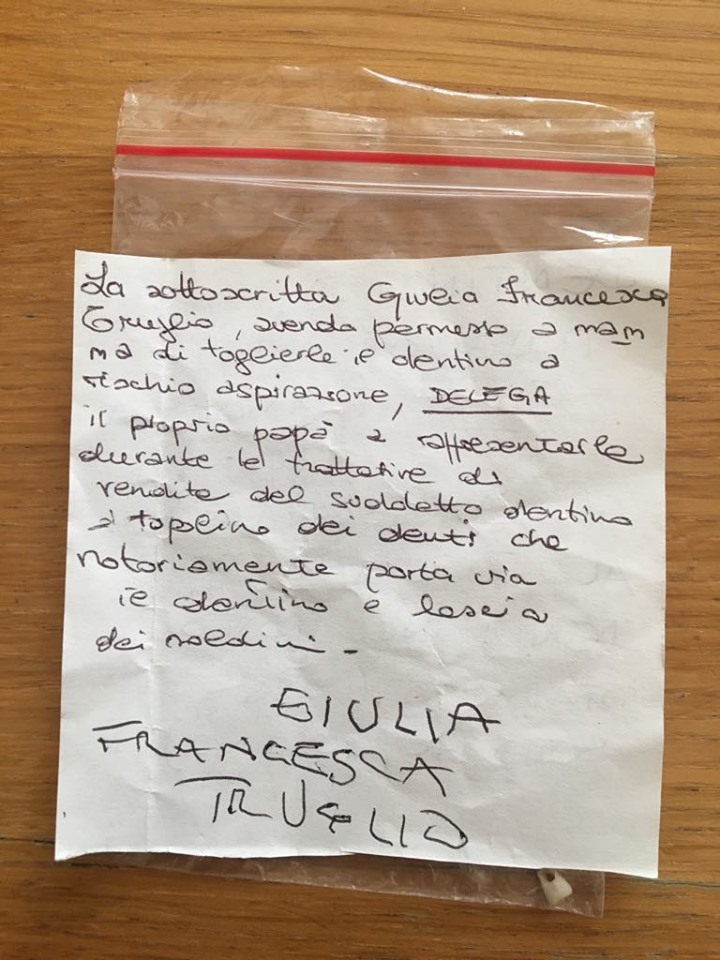 La sottoscritta Giulia Francesca
Truglio, avendo permesso a mam
ma di toglierle il dentino a
rischio aspirazione, DELEGA
il proprio papà a rappresentarla
durante le trattative di
vendita del suddetto dentino
a topolino dei denti che
notoriamente porta via
il dentino e lascia
dei soldini.-
GIULIA
FRANCESCA
TRUGLIO